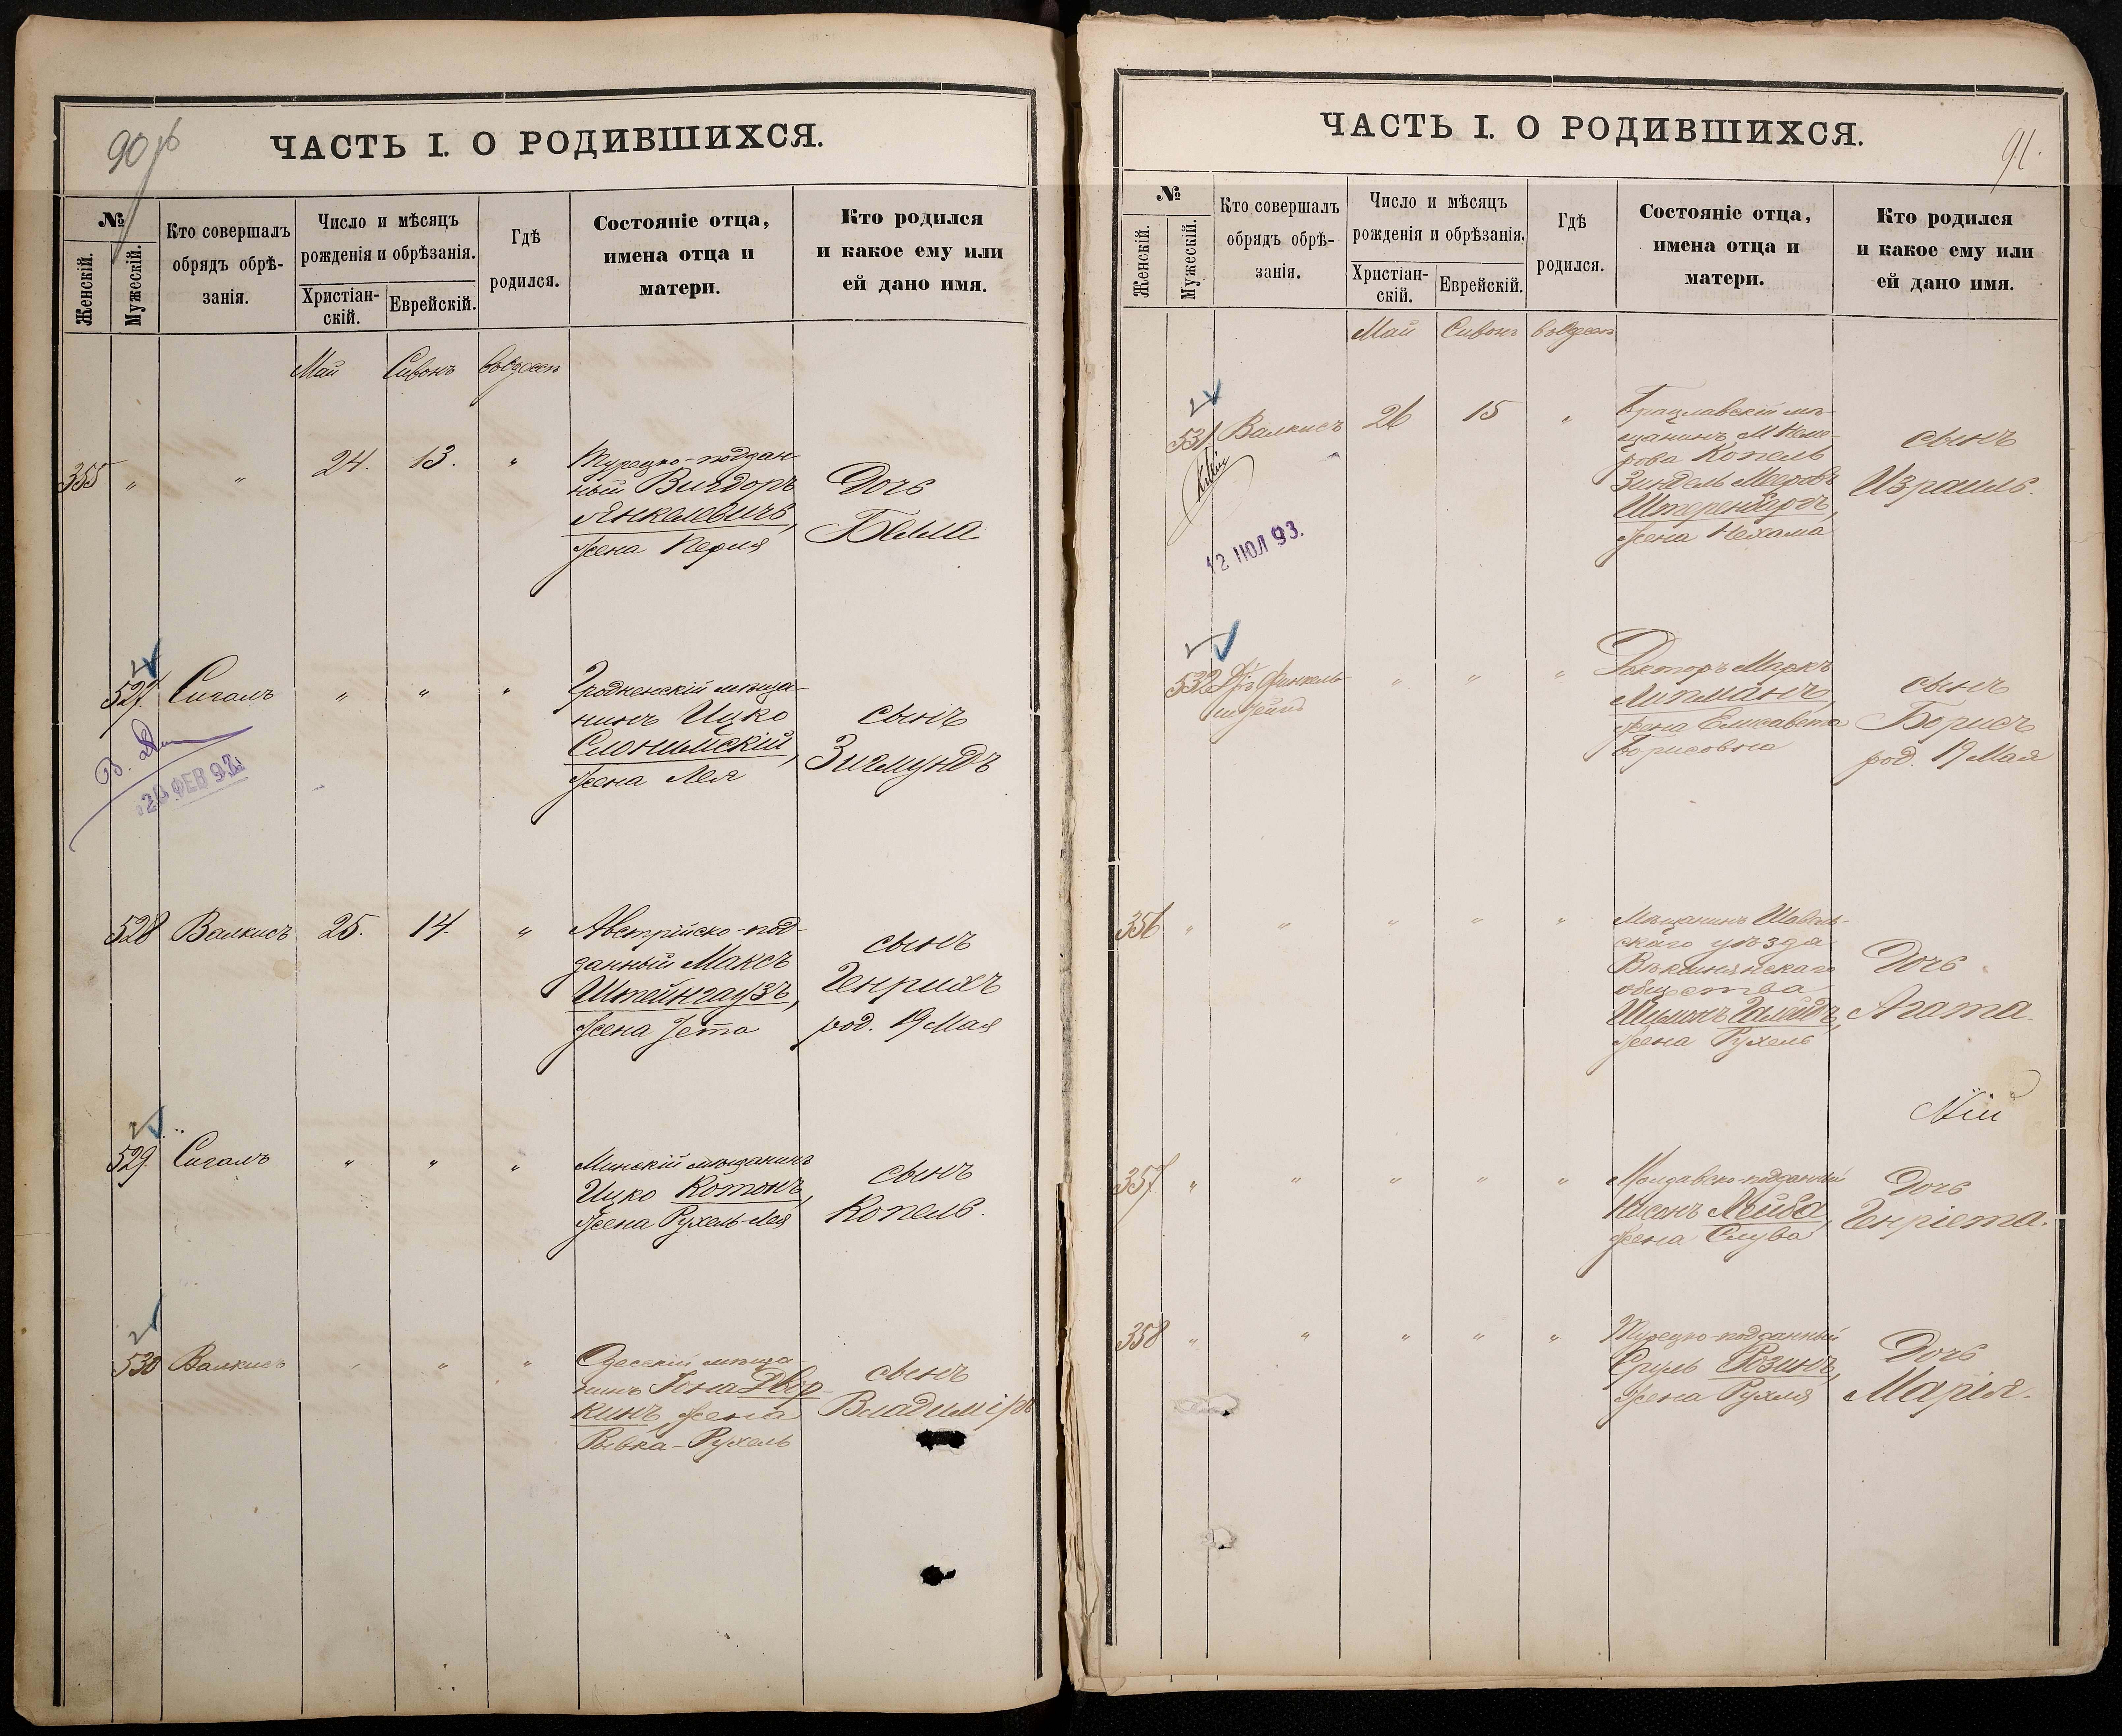 90 об
ЧАСТЬ I. О РОДИВШИХСЯ.
№
Женскій.
Мужескій.
Кто совершалъ
обрядъ обрѣ-
занія.
Число и мѣсяцъ
рожденія и обрѣзанія.
Христіан-
скій.
Еврейскій.
Гдѣ
родился.
Состояніе отца,
имена отца и
матери.
Кто родился
и какое ему или
ей дано имя.
Май Сивонъ
355 " " 24. 13. "
Турецко-поддан-
ный Вигдоръ
Янкелевичъ,
жена Перля
Дочь
Белла
527. Сигалъ " " "
Гродненскій мѣща-
нинъ Ицко
Слонимскій,
жена Лея
сынъ
Зигмундъ
20 ФЕВ 92
528 Валкисъ 25. 14. "
Австрійско-под-
данный Максъ
Штейнгаузъ,
жена Іета
сынъ
Генрихъ
род. 19 Мая
529. Сигалъ " " "
Минскій мѣщанинъ
Ицко Котонъ,
жена Рухель-Лея
сынъ
Копель.
530 Валкисъ " " "
Одесскій мѣща
нинъ Іона Двор-
кинъ, жена
Ривка-Рухель
сынъ
Владиміръ
91.
ЧАСТЬ I. О РОДИВШИХСЯ.
№
Женскій.
Мужескій.
Кто совершалъ
обрядъ обрѣ-
занія.
Число и мѣсяцъ
рожденія и обрѣзанія.
Христіан-
скій.
Еврейскій.
Гдѣ
родился.
Состояніе отца,
имена отца и
матери.
Кто родился
и какое ему или
ей дано имя.
Май Сивонъ
531. Валкисъ 26 15 "
Брацлавскій мѣ-
щанинъ М Неми-
рова Копель
Зиндель Мееровъ
Штеренбергъ,
жена Нехама
сынъ
Израиль.
12 ИЮЛ 93.
532 Д-ръ Финкель-
штейнъ " " "
Докторъ Маркъ
Липманъ,
жена Елисавета
Борисовна
сынъ
Борисъ
род. 19 Мая
356 " " " " "
Мѣщанинъ Шавель-
скаго уѣзда
Векшнянскаго
общества
жена Рухель
Дочь
Агата.
357 " " " " "
Молдавско-подданный
Нисонъ Лейба,
жена Слува
Дочь
Генріета.
358 " " " " "
Турецко-подданный
Сруль Розинъ,
жена Рухля
Дочь
Марія.